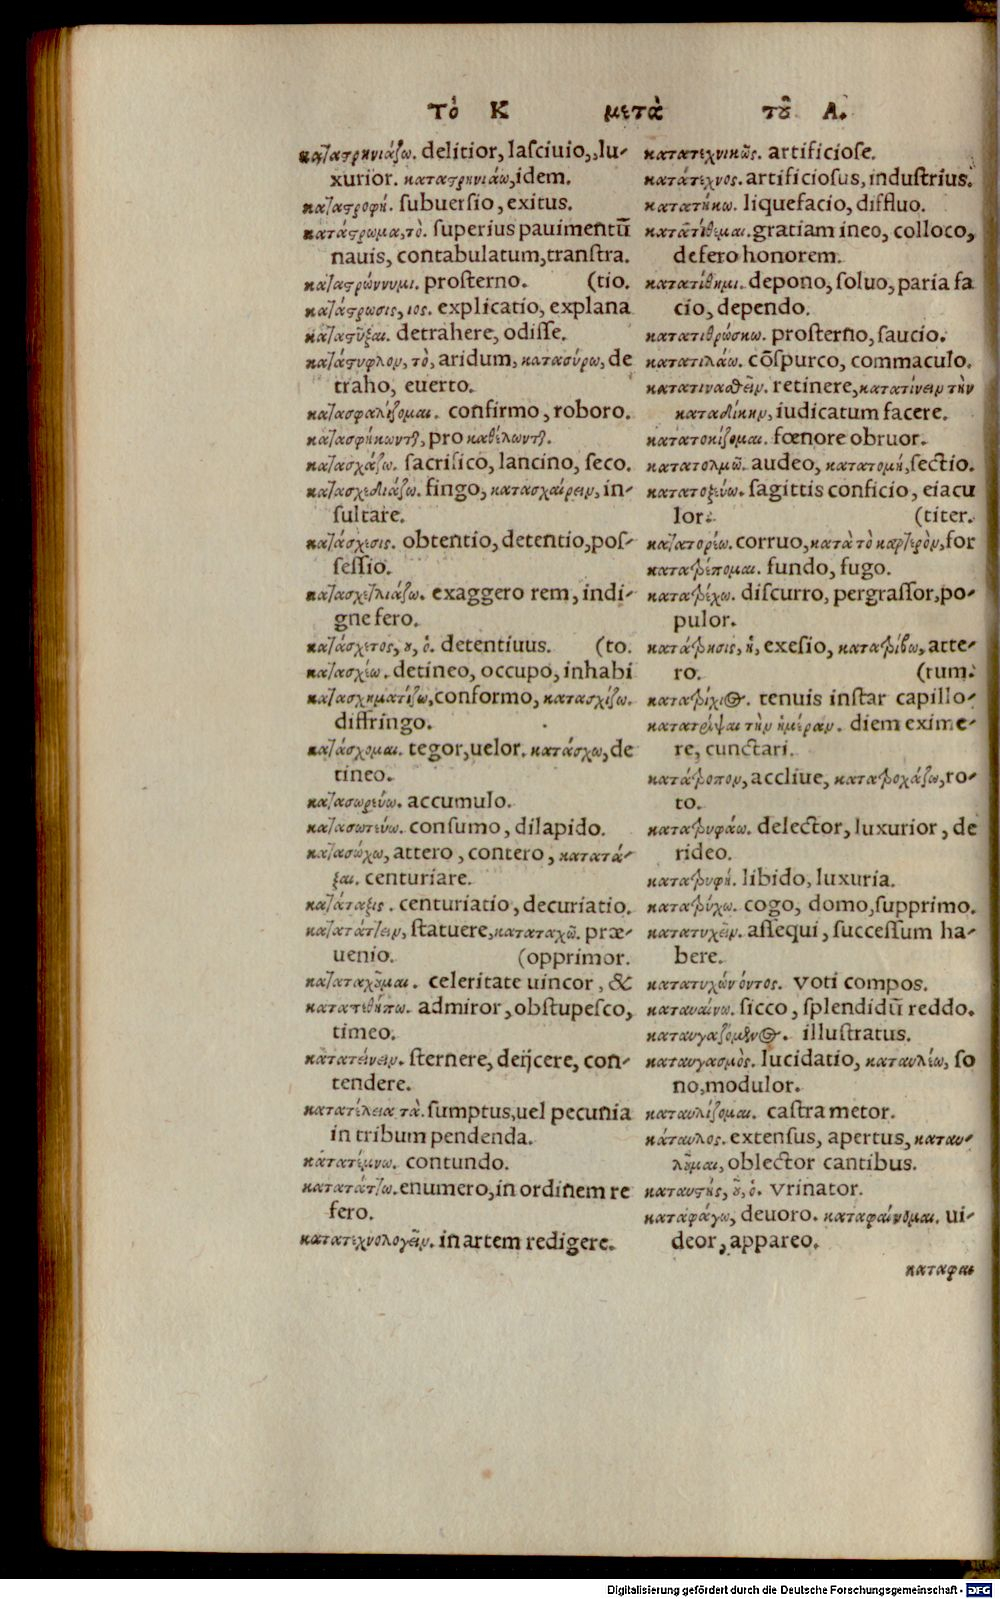 Τὸ Κ μετὰ τοῦ Α.
καταστρηνιάζω. delitior, lasciuio,,lu-
xurior. καταστρηνιάω, idem.
καταστροφή. subuersio, exitus.
κατάστρωμα, τὸ. superius pauimentū
nauis, contabulatum, transtra.
καταστρώννυμι. prosterno. (tio.
κατάστρωσις, ιος. explicatio, explana
καταστύξαι. detrahere, odisse.
κατάστυφλον, τὸ, aridum, κατασύρω, de
traho, euerto.
κατασφαλίζομαι. confirmo, roboro.
κατασφήκωντ, pro καθήλωντ.
κατασχάζω. sacrifico, lancino, seco.
κατασχεδιάζω. fingo, κατασχαίρειν, in-
sultare.
κατάσχεσις. obtentio, detentio, pos-
sessio.
κατασχετλιάζω. exaggero rem, indi-
gne fero.
κατάσχετος, ου, ὁ. detentiuus. (to.
κατασχέω. detineo, occupo, inhabi
κατασχηματίζω, conformo, κατασχίζω.
diffringo.
κατάσχομαι. tegor, uelor. κατάσχω, de
tineo.
κατασωρεύω. accumulo.
κατασωτεύω. consumo, dilapido.
κατασώχω, attero, contero, κατατά-
ξαι. centuriare.
κατάταξις. centuriatio, decuriatio.
κατατάττειν, statuere, καταταχῶ. præ
uenio. (opprimor.
καταταχοῦμαι. celeritate uincor, &
κατατεθήπω. admiror, obstupesco,
timeo.
κατατείνειν. sternere, deijcere, con-
tendere.
κατατέλεια τὰ. sumptus, uel pecunia
in tribum pendenda.
κατατέμνω. contundo.
κατατάττω. enumero, in ordinem re
fero.
κατατεχνολογεῖν. in artem redigere.
κατατεχνικῶς. artificiose.
κατάτεχνος. artificiosus, industrius.
κατατήκω. liquefacio, diffluo.
κατατίθεμαι. gratiam ineo, colloco,
defero honorem.
κατατίθημι. depono, soluo, paria fa
cio, dependo.
κατατιθρώσκω. prosterno, saucio.
κατατιλάω. cōspurco, commaculo.
κατατιναθεῖν. retinere, κατατίνειν τὴν
καταδίκην, iudicatum facere.
κατατοκίζομαι. fœnore obruor.
κατατολμῶ. audeo, κατατομή, sectio.
κατατοξεύω. sagittis conficio, eiacu
lor. (titer.
κατατορέω. corruo, κατὰ τὸ καρτερὸν, for
κατατρέπομαι. fundo, fugo.
κατατρέχω. discurro, pergrassor, po-
pulor.
κατάτρησις, ἡ, exesio, κατατρίβω, atte-
ro. (rum.
κατατρίχιος. tenuis instar capillo-
κατατρίψαι τὴν ἡμέραν. diem exime-
re, cunctari.
κατάτροπον, accliue, κατατροχάζω, ro-
to.
κατατρυφάω. delector, luxurior, de
rideo.
κατατρυφή. libido, luxuria.
κατατρύχω. cogo, domo, supprimo.
κατατυχεῖν. assequi, successum ha-
bere.
κατατυχών όντος. voti compos.
καταυαίνω. sicco, splendidū reddo.
καταυγαζόμενος. illustratus.
καταυγασμὸς. lucidatio, καταυλέω, so
no, modulor.
καταυλίζομαι. castra metor.
κάταυλος. extensus, apertus, καταυ-
λοῦμαι, oblector cantibus.
καταυστής, οῦ, ὁ. vrinator.
καταφάγω, deuoro. καταφαίνομαι. ui-
deor, appareo.
καταφαι
Digitalisierung gefördert durch die Deutsche Forschungsgemeinschaft - DFG